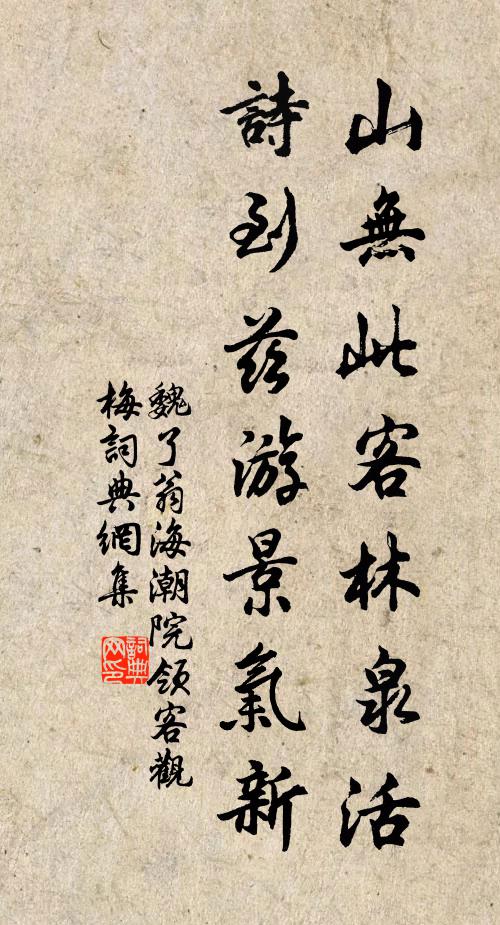 山無此客林泉活
詩到茲游景氣新
魏了翁海潮院領客觀
梅詞典網集
詞典
网印